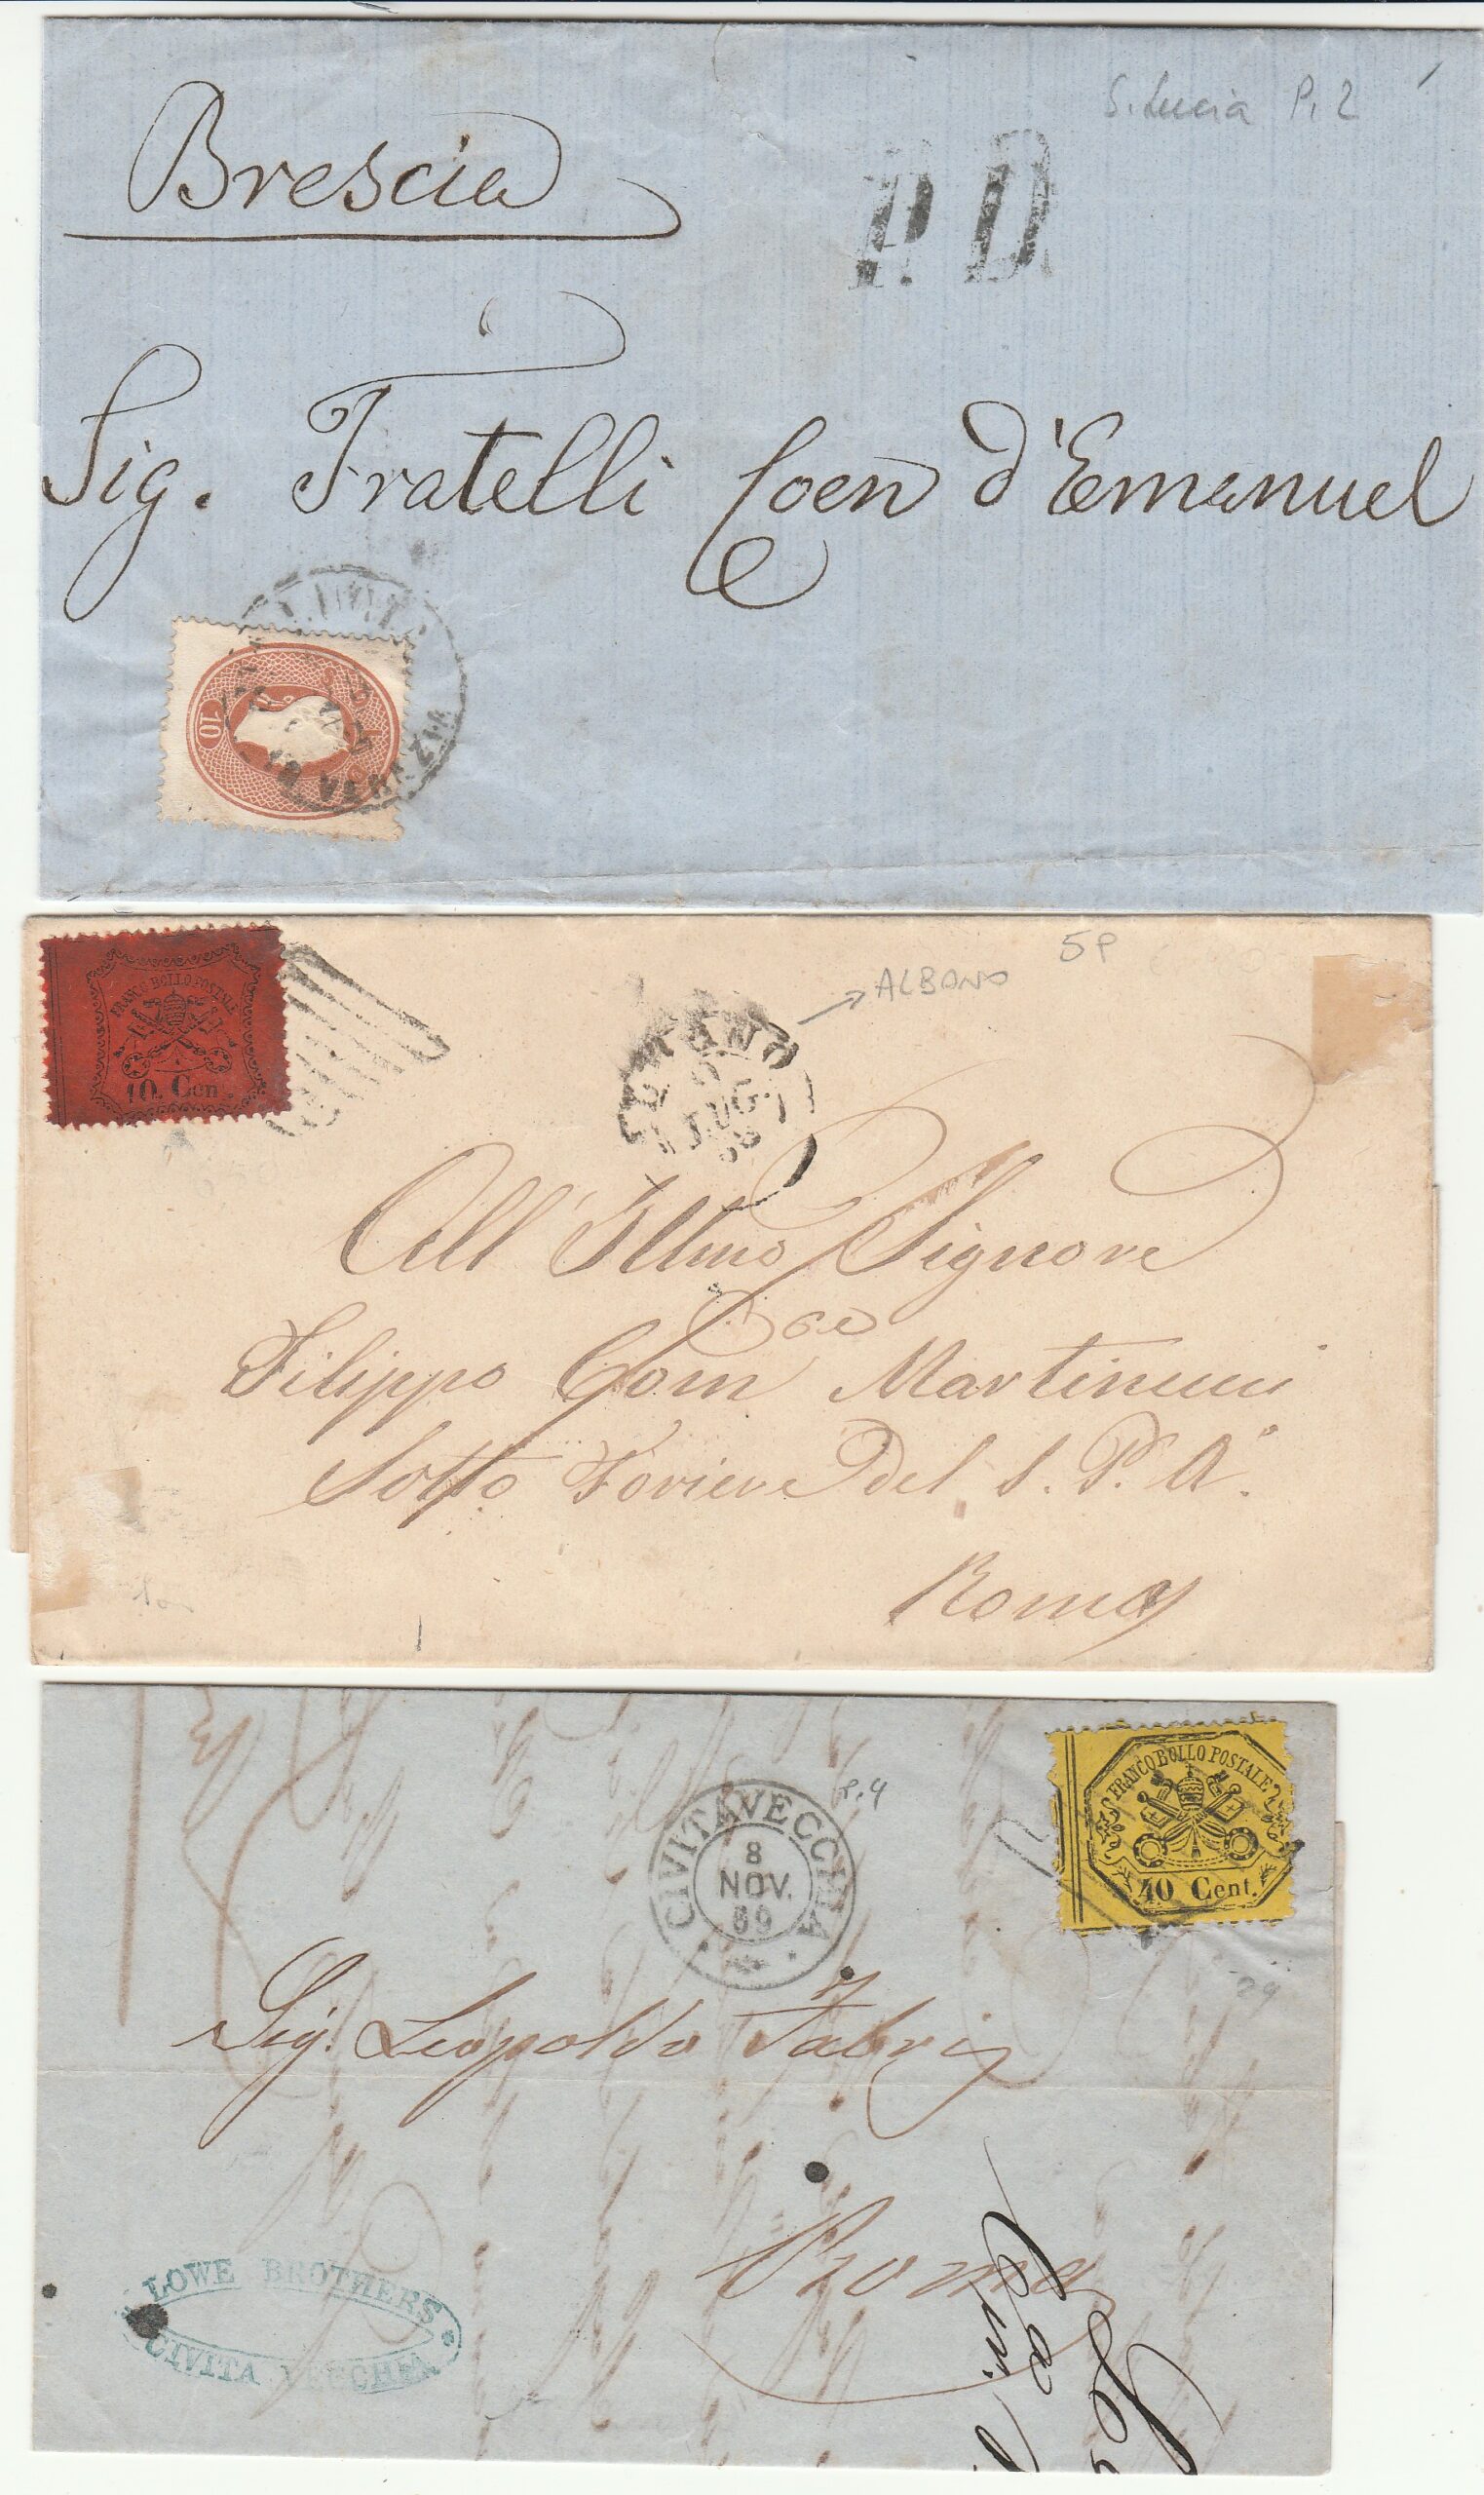 S. Lucia P. 2
Brescia
P. D.
Sig. Fratelli Coen d'Emanuel
10
VENEZIA
5 P
ALBANO
FRANCO BOLLO POSTALE
10. Cen.
LUG.
All' Illmo Signore
Filippo Com Martinucci
Sotto Foriere Del S. P. A.
Roma
P. 4
FRANCO BOLLO POSTALE
40 Cent.
CIVITAVECCHIA
8
NOV.
69
29
Sig. Leopoldo Fabri
Roma
LOWE BROTHERS
CIVITA VECCHIA